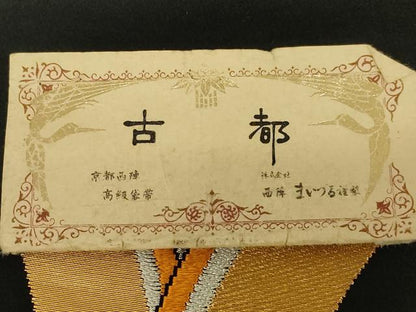 古都
京都西陣
高級袋帯
株式会社
西陣 まいづる謹製